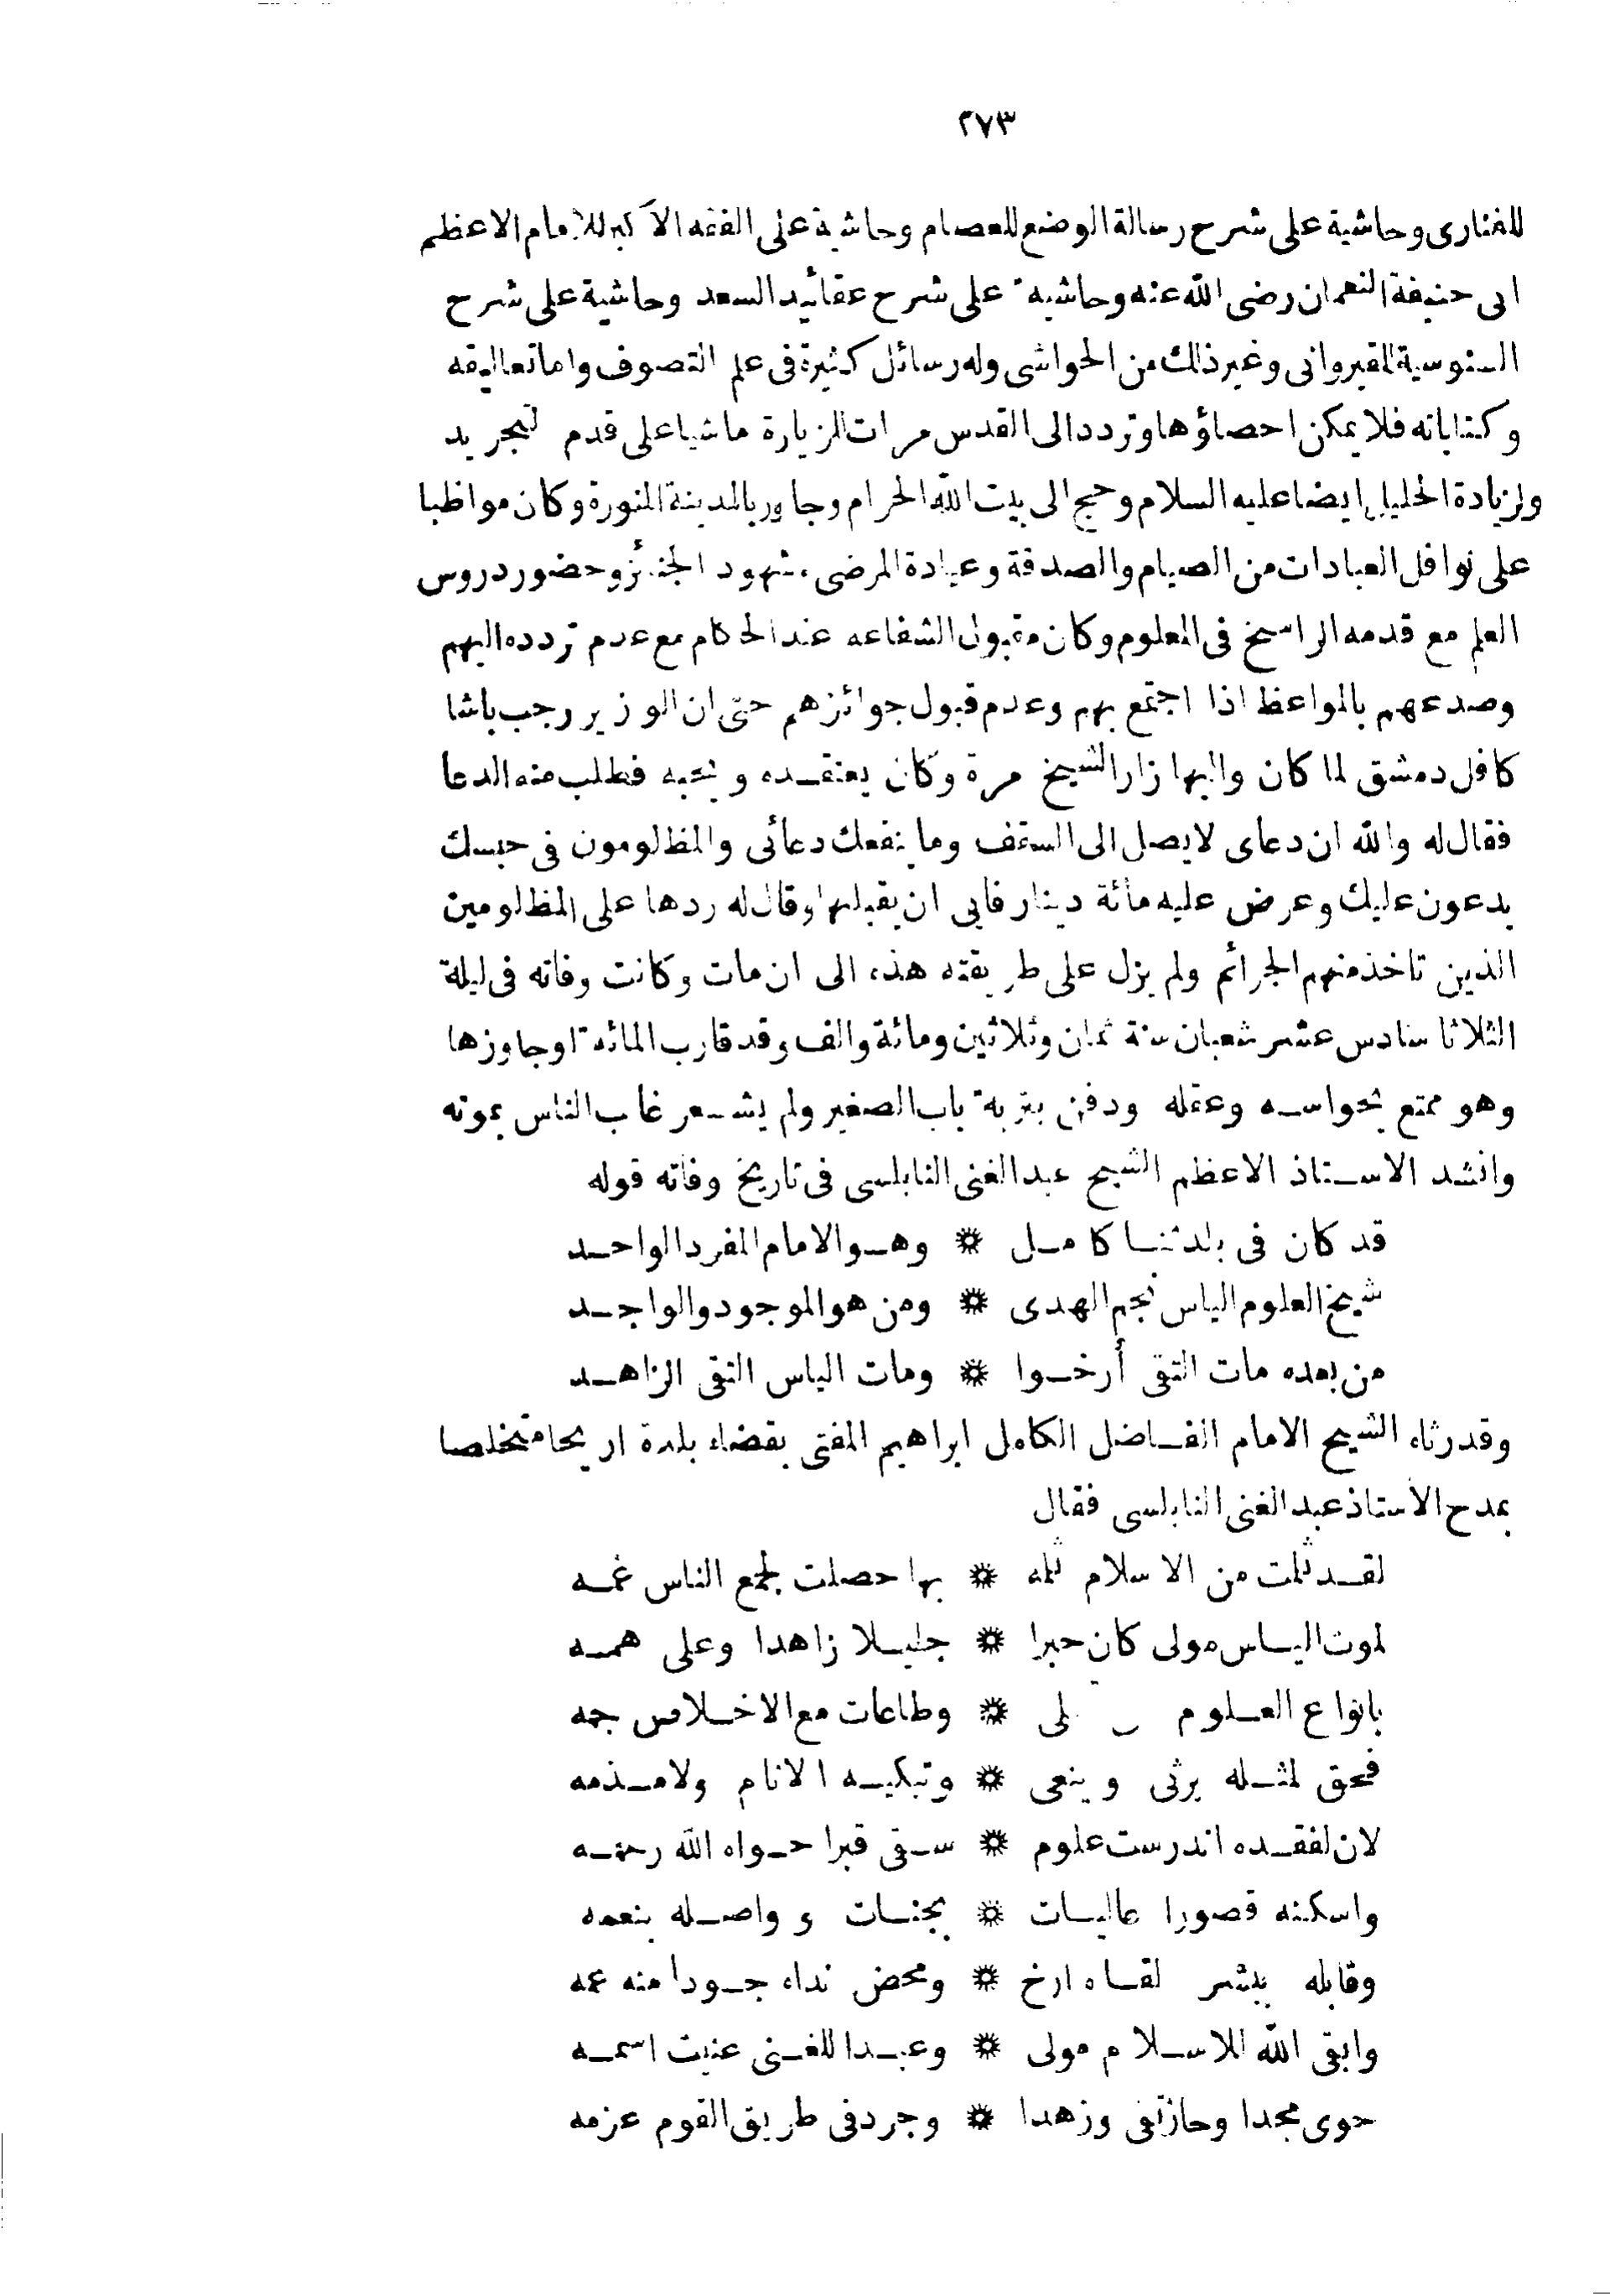 ٢٧٣
للفنارى وحاشية على شرح رسالة الوضع للعصام وحاشية على الفقه الاكبر للامام الاعظم
ابى حنيفة النعمان رضى الله عنه وحاشية على شرح عقائد السعد وحاشية على شرح
السنوسية للقيروانى وغير ذلك من الحواشى وله رسائل كثيرة فى علم التصوف واما تعاليقه
وكتاباته فلا يمكن احصاؤها وتردد الى القدس مرات للزيارة ماشيا على قدم التجريد
ولزيادة الخليل ايضا عليه السلام وحج الى بيت الله الحرام وجاور بالمدينة المنورة وكان مواظبا
على نوافل العبادات من الصيام والصدقة وعيادة المرضى وشهود الجنائز وحضور دروس
العلم مع قدمه الراسخ فى العلوم وكان مقبول الشفاعه عند الحكام مع عدم تردده اليهم
وصدعهم بالمواعظ اذا اجتمع بهم وعدم قبول جوائزهم حتى ان الوزير رجب باشا
كافل دمشق لما كان واليها زار الشيخ مرة وكان يعتقده ويحبه فطلب منه الدعا
فقال له والله ان دعاى لا يصل الى السقف وما ينفعك دعائى والمظلومون فى حبسك
يدعون عليك وعرض عليه مائة دينار فابى ان يقبلها وقال له ردها على المظلومين
الذين تاخذ منهم الجرائم ولم يزل على طريقته هذه الى ان مات وكانت وفاته فى ليلة
الثلاثا سادس عشر شعبان سنة ثمان وثلاثين ومائة والف وقد قارب المائة اوجاوزها
وهو ممتع بحواسه وعقله ودفن بتربة باب الصغير ولم يشعر غاب الناس بموته
وانشد الاستاذ الاعظم الشيخ عبد الغنى النابلسى فى تاريخ وفاته قوله
قد كان فى بلدتنا كامل ❊ وهو الامام المفرد الواحد
شيخ العلوم الياس نجم الهدى ❊ ومن هو الموجود والواجد
من بعده مات التقى أرخوا ❊ ومات الياس التقى الزاهد
وقد رثاه الشيخ الامام الفاضل الكامل ابراهيم المفتى بقضاء بلدة اريحا متخلصا
بمدح الاستاذ عبد الغنى النابلسى فقال
لقد ثلمت من الاسلام ثلمه ❊ بها حصلت لجمع الناس غمه
لموت الياس مولى كان حبرا ❊ جليلا زاهدا وعلى همه
بانواع العلوم ❊ وطاعات مع الاخلاص جمه
فحق لمثله يرثى وينعى ❊ وتبكيه الانام ولا مذمه
لان لفقده اندرست علوم ❊ سقى قبرا حواه الله رحمه
واسكنه قصورا عاليات ❊ بجنات وواصله بنعمه
وقابله ببشر لقاه ارخ ❊ ومحض نداه جودا منه عمه
وابقى الله للاسلام مولى ❊ وعبدا للغنى عنيت اسمه
حوى مجدا وحاز تقى وزهدا ❊ وجرد فى طريق القوم عزمه